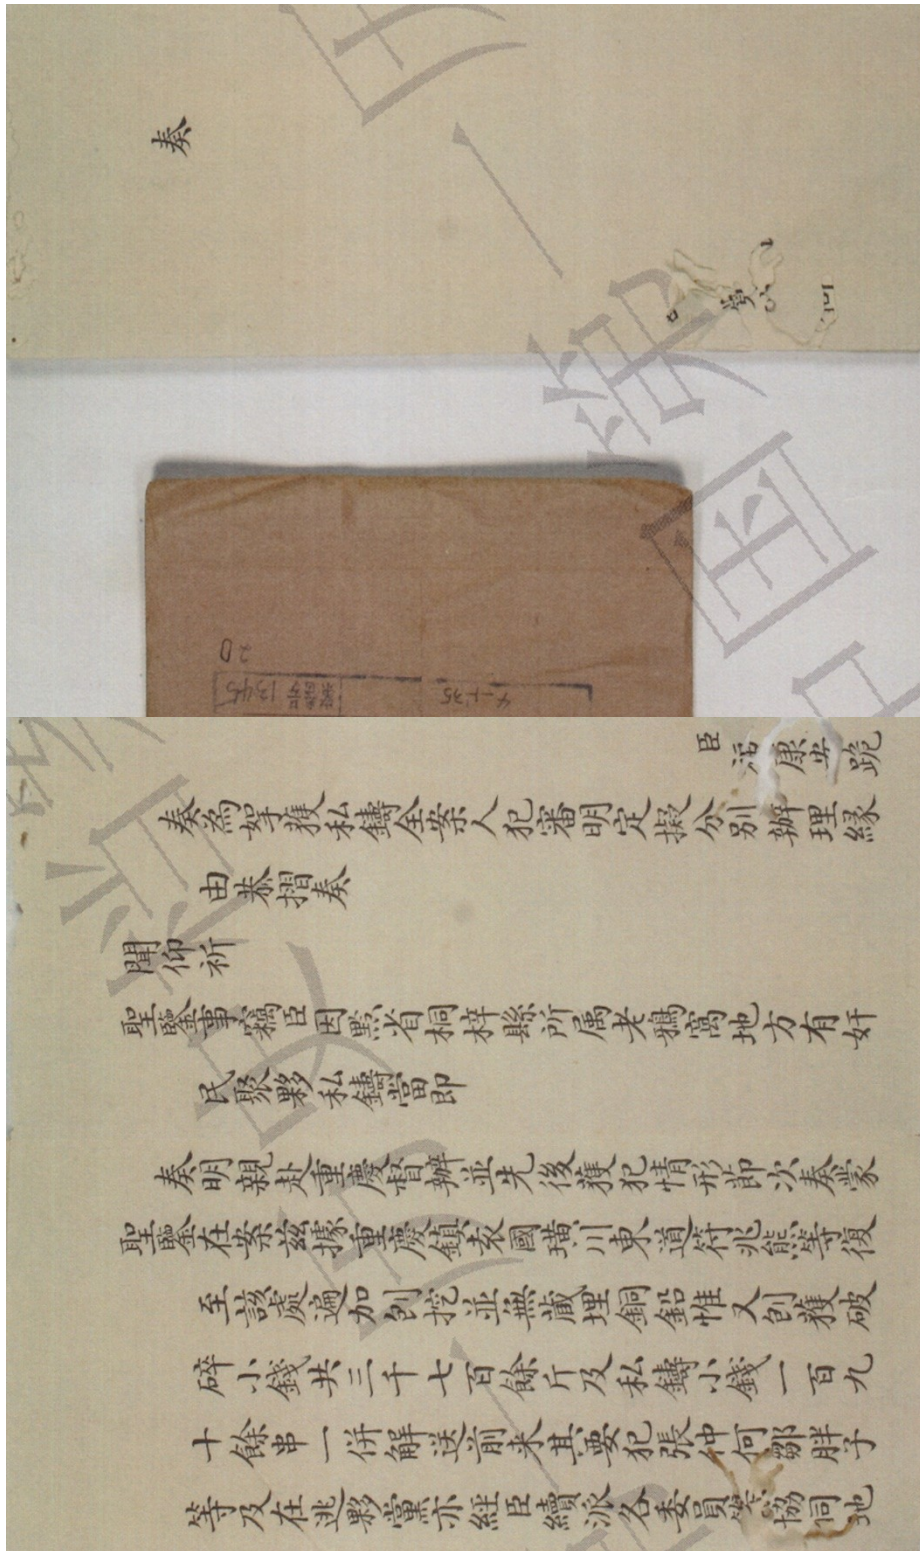 奏
20
1345
4-1-35
臣福康安跪
奏為拏獲私鑄全案人犯審明定擬分別辦理緣
由恭摺奏
聞仰祈
聖鑒事竊臣因黔省桐梓縣所屬老鴉窩地方有奸
民聚夥私鑄當即
奏明親赴重慶督辦並先後獲犯情形節次奏蒙
聖鑒在案茲據重慶鎮袁國璜川東道符兆熊等復
至該處遍加刨挖並無藏埋銅鉛惟又刨獲破
碎小錢共三千七百餘斤及私鑄小錢一百九
十餘串一併解送前来其要犯張仲何鄒胖子
等及在逃夥黨亦經臣續派各委員等協同地